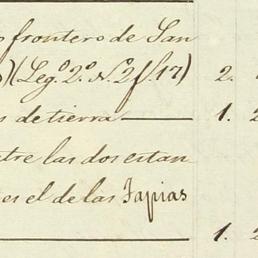 frontero de San
(Leg.º 2.º N.º 2 f. 17) 2.
de tierra 1. 2
las dos estan
es el de las Tapias
1. 2